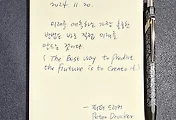 2024. 11. 20.
미래를 예측하는 가장 훌륭한
방법은 바로 직접 미래를
만드는 것이다.
( The Best way to predict
the furture is to create it. )
- 피터 드러커
Peter Drucker